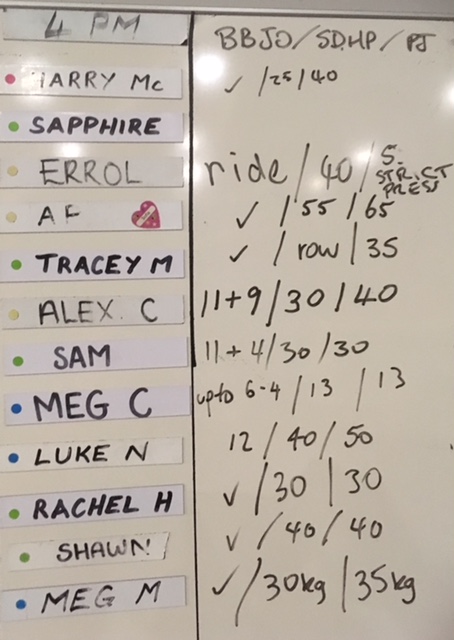 4 PM BBJO / SDHP / PJ
HARRY Mc ✓ / 25 / 40
SAPPHIRE
ERROL ride / 40 / S. STRICT PRESS
AF ✓ / 55 / 65
TRACEY M ✓ / row / 35
ALEX. C 11+9 / 30 / 40
SAM 11 + 4 / 30 / 30
MEG C upto 6-4 / 13 / 13
LUKE N 12 / 40 / 50
RACHEL H ✓ / 30 / 30
SHAWN ✓ / 40 / 40
MEG M ✓ / 30kg / 35kg